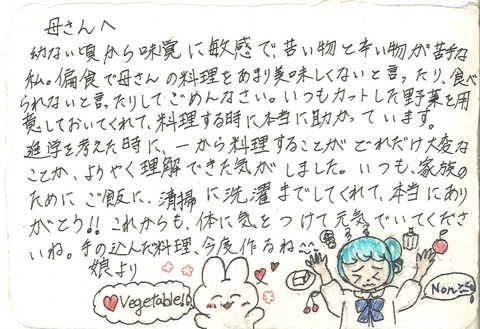 母さんへ
幼ない頃から味覚に敏感で、苦い物と辛い物が苦手な
私。偏食で母さんの料理をあまり美味しくないと言ったり、食べ
られないと言ったりしてごめんなさい。いつもカットした野菜を用
意しておいてくれて、料理する時に本当に助かっています。
進学を考えた時に、一から料理することがどれだけ大変な
ことか、ようやく理解できた気がしました。いつも、家族の
ためにご飯に、清掃に洗濯までしてくれて、本当にあり
がとう!!これからも、体に気をつけて元気でいてくださ
いね。手の込んだ料理、今度作るね^^
娘より
Vegetable!!
Non